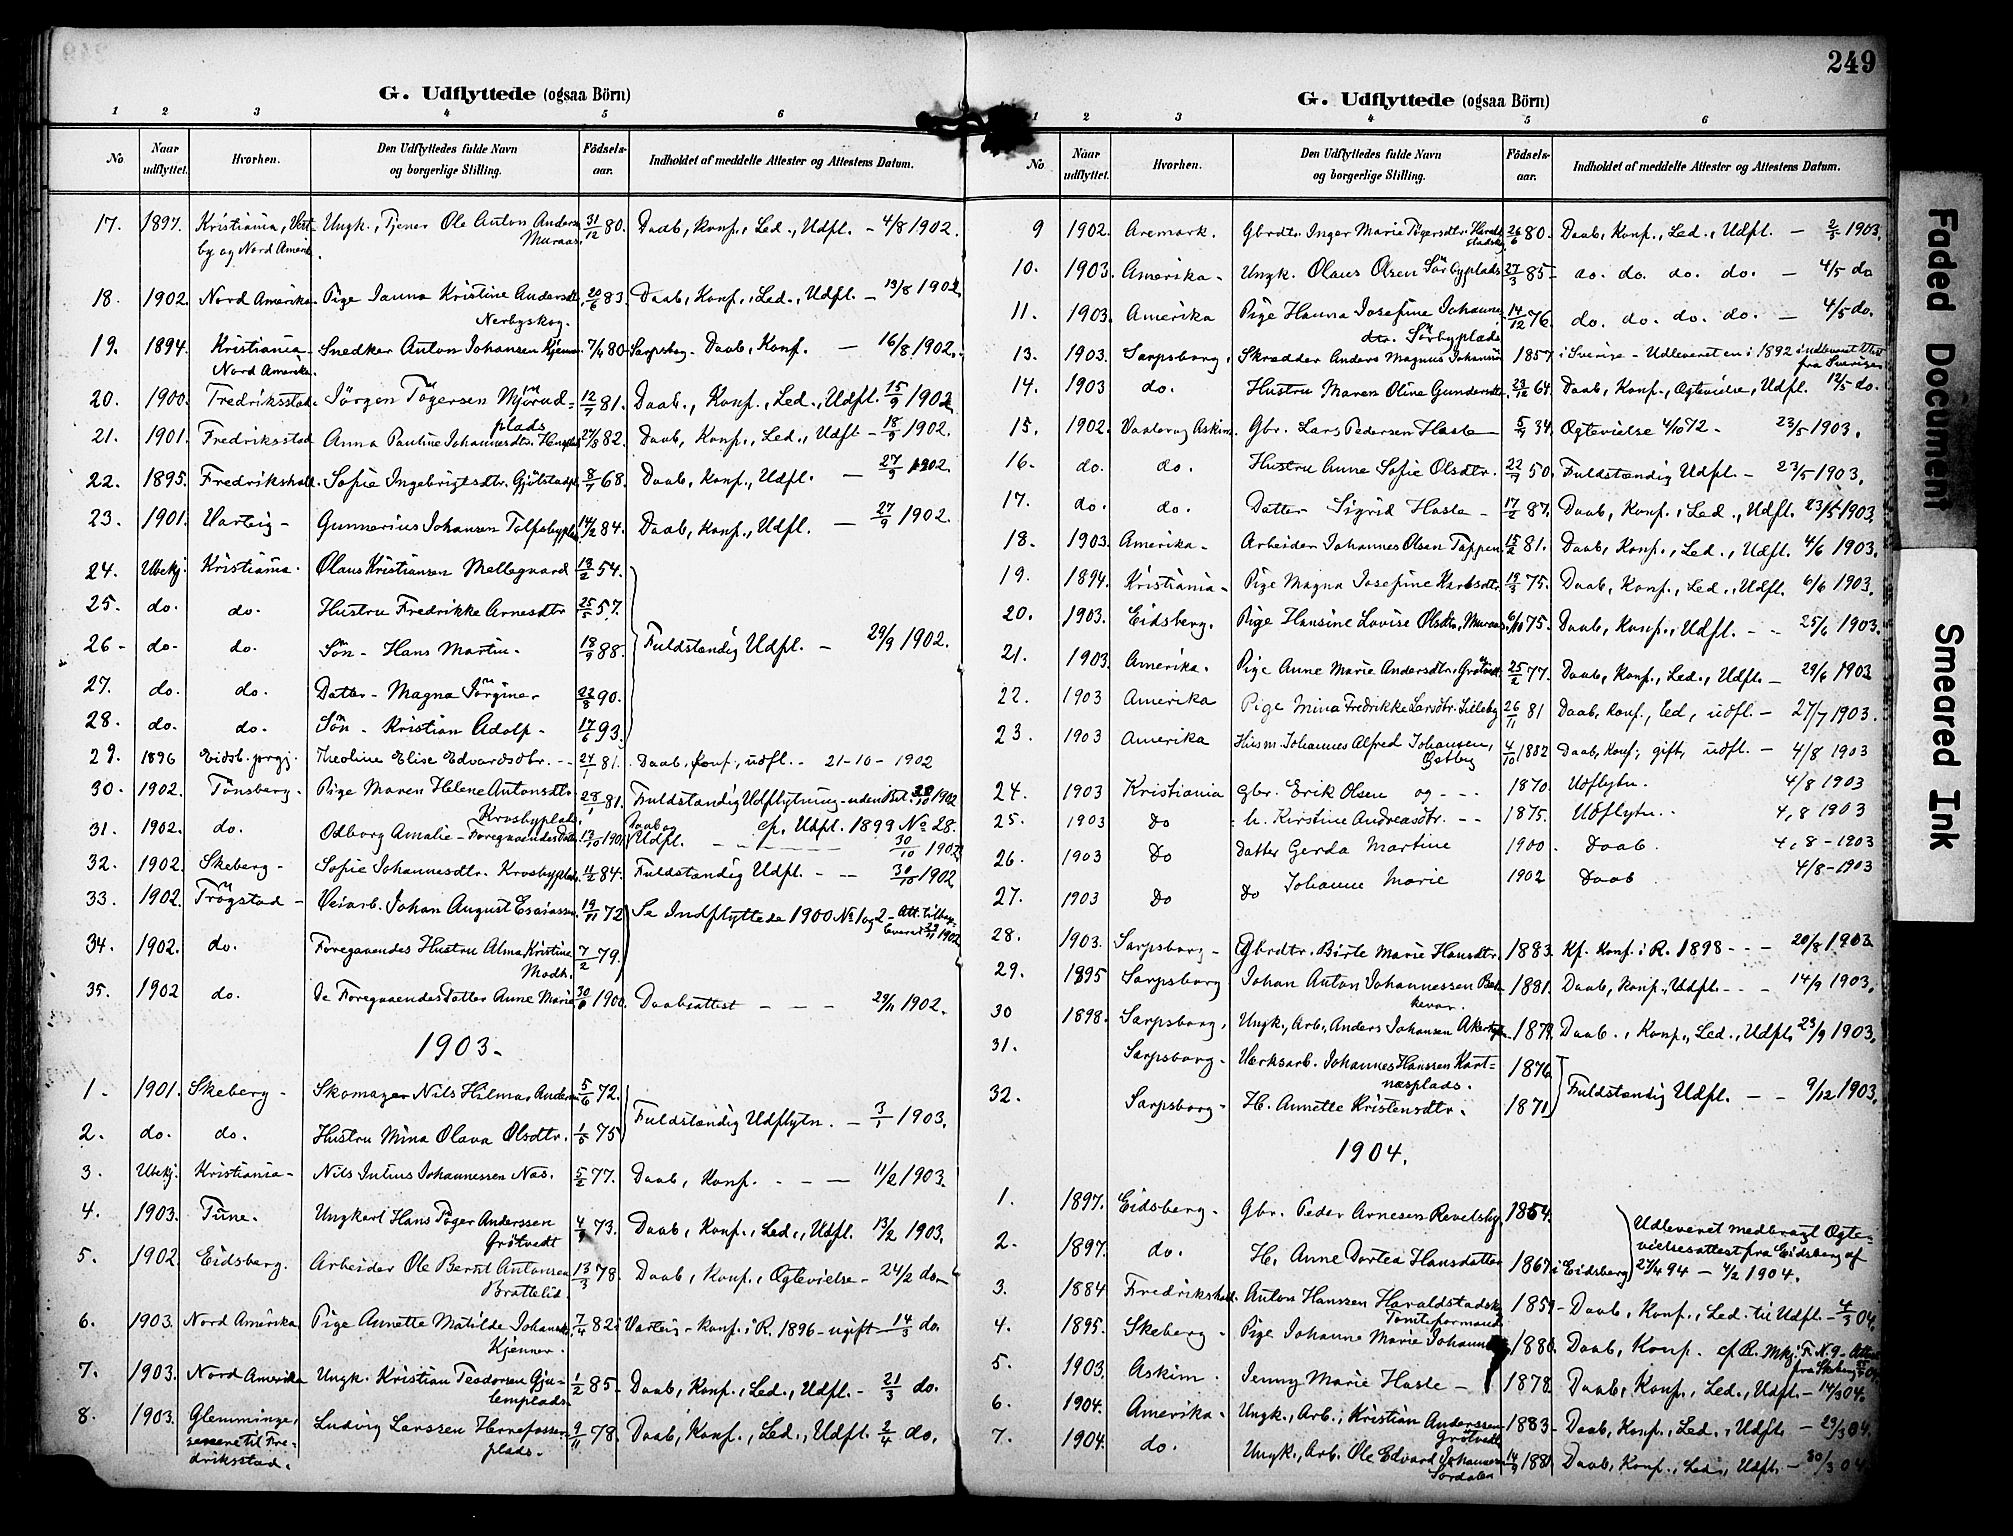 249
G. Udflyttede (ogsaa Börn)
1 2 3 4 5 6
No Naar udflyttet. Hvorhen. Den Udflyttedes fulde Navn og borgerlige Stilling. Födsels-aar. Indholdet af meddelte Attester og Attestens Datum.
17. 1897. Kristiania, Vest- Ungk., Tjener Ole Anton Anders. 31/12 80. Daab, Konf., Led., Udfl. - 4/8 1902.
by og Nord Amerik. Muraas.
18. 1902. Nord Amerika. Pige Janna Kristine Andersdtr. 20/6 83. Daab, Konf., Led., Udfl. - 13/8 1902.
Nerbyskog.
19. 1894. Kristiania Snedker Anton Johansen 80 Sarpsbog. Daab, Konf. - 16/8 1902.
Nord Amerika.
20. 1900. Fredriksstad. Jörgen Tögersen Mjörud= 12/7 81. Daab., Konf., Led., Udfl. 15/9 1902.
plads
21. 1901. Fredriksstad Anna Pauline Johannesdtr. 82. Daab, Konf., Led., Udfl. - 18/9 1902.
22. 1895. Fredrikshald. Sofie Ingebrigtsdtr. 68. Daab, Konf., Udfl. - 27/9 1902.
23. 1901. Varteig - Gunnerius Johansen 14/2 84. Daab, Konf., Udfl. - 27/9 1902.
24. Ubekj. Kristiania. Olaus Kristiansen Mellegaard 13/2 54.
25. do. do. Hustru Fredrikke Arnesdtr 25/5 57.
26 - do. do. Sön - Hans Martin - 18/9 88. Fuldstændig Udfl. - 29/9 1902.
27. do. do. Datter - Magna Jörgine - 22/8 90.
28. do. do. Sön - Kristian Adolf - 17/6 93.
29. 1896 Eidsb. prgj. Theoline Elise Edvardsdtr. - - 81. Daab, konf., udfl. - 21-10-1902
30. 1902. Tönsberg - Pige Maren Helene Antonsdtr. 28/1 81. Fuldstændig Udflytning - uden Bet. 1902
Krosbyplads. cfr. Udfl. 1899 No 28.
31. 1902. do. Odborg Amalie - Foregaaendes Datter. 13/10 1901. Daab og Udfl. - - - 30/10 1902
32. 1902. Skeberg - Sofie Johannesdtr. Krosbyplads. 84. Fuldstændig Udfl. - - 30/10 1902
33. 1902. Trögstad - Veiarb. Johan August Esaiassen 19/11 72 Se Indflyttede 1900 No 1 og 2 - Att. tilbage-
leveret 1902
34. 1902. do. Foregaaendes Hustru Alma Kristine 7/2 79.
35. 1902 do. De Foregaaendes Datter Anne Marie 1900. Daabsattest - - - 29/11 1902.
1903.
1. 1901. Skeberg - Skomager Nils Hilmar Anders. 5/6 72.
Fuldstændig Udflytn. - 3/1 1903.
2. do. do. Hustru Mina Olava Olsdtr. 75
3. Ubekj. Kristiania - Nils Julius Johannessen Nas. 5/2 77. Daab, Konf. - - - 11/2 1903.
4. 1903. Tune. Ungkarl Hans Töger Anderssen 73. Daab, Konf., Led., Udfl. 13/2 1903.
Grötvedt
5. 1902. Eidsberg. Arbeider Ole Bernt Antonsen 13/3 78. Daab, Konf., Ogtevielse - 24/2 do -
Brattelid.
6. 1903. Nord Amerika Pige Annette Matilde Johans. 7/4 82 i Varteig - Konf. i R. 1896 - ugift - 14/3 do.
Kjenner.
7. 1903. Nord Amerika Ungk. Kristian Teodorsen Gju- 1/2 85 - Daab, Konf., Led., Udfl. - 21/3 do.
lemplads.
8. 1903. Glemminge, Ludvig Larssen 9/11 78. Daab, Konf., Led., Udfl. 2/4 do.
senere til Fre- plads.
driksstad.
G. Udflyttede (ogsaa Börn)
1 2 3 4 5 6
No Naar udflyttet. Hvorhen. Den Udflyttedes fulde Navn og borgerlige Stilling. Födsels-aar. Indholdet af meddelte Attester og Attestens Datum.
9 1902. Aremark. Gbrdtr. Inger Marie Tögersdtr. 26/6 80. Daab, Konf., Led., Udfl. - 1903.
10. 1903. Amerika - Ungk. Olaus Olsen Sörbyplads 27/3 85 - do. do. do. do. - 4/5 do
11. 1903. Amerika Pige Hanna Josefine Johannes- 14/12 76. do. do. do. do. - 4/5 do.
dtr. Sörbyplads
13. 1903. Sarpsborg, Skrædder Anders Magnus Johansen 1857 i Sverige - Udleveret en i 1892 indleveret Attest
fra Sverige
14. 1903 do. Hustru Maren Oline Gundersdtr. 23/12 64. Daab, Konf., Ogtevielse, Udfl. 12/5 do.
15. 1902. Vaaler og Askim. Gbr. Lars Pedersen Hasle 34. Ogtevielse 4/10 72 - 23/5 1903.
16. do. do. Hustru Anne Sofie Olsdtr. 50. Fuldstændig Udfl. - 23/5 1903.
17. do. do. Datter Sigrid Hasle - 17/2 87. Daab, Konf., Led., Udfl. 23/5 1903.
18. 1903. Amerika - Arbeider Johannes Olsen Tappen 15/2 81. Daab, Konf., Led., Udfl. 4/6 1903.
19. 1894. Kristiania - Pige Magna Josefine Karlsdtr. 19/3 75. Daab, Konf., Led., Udfl. 6/6 1903.
20. 1903. Eidsberg. Pige Hansine Lovise Olsdtr. Muraas. 6/10 75. Daab, Konf., Udfl. - - 25/6 1903.
21. 1903. Amerika. Pige Anne Marie Andersdtr. Grötvedt. 25/2 77. Daab, Konf., Led., Udfl. - 29/6 1903
22. 1903 Amerika Pige Mina Fredrikke Larsdtr. Lilleby 26/11 81 Daab, konf., Led, udfl. - 27/7 1903.
23. 1903 Amerika Husm. Johannes Alfred Johansen, 4/10 1882 Daab, Konf., gift, udfl. - 4/8 1903
Østby
24. 1903 Kristiania gbr. Erik Olsen og - - - 1870 Udflytn. 4/8 1903
25. 1903 Do h. Kirstine Andreasdtr. - - 1875. Udflytn. . 4,8 1903
26. 1903 Do Datter Gerda Martine 1900. Daab. 4,8-1903
27. 1903 Do Do Johanne Marie 1902 Daab 4/8-1903
28. 1903. Sarpsborg - Gbrdtr. Birte Marie Hansdtr. 1883. Kf. Konf. i R. 1898 - - - 20/8 1903
29. 1895 Sarpsborg Johan Anton Johannessen Bak- 1881. Daab, Konf., Udfl. - - - 14/9 1903.
kevar.
30 1898. Sarpsborg, Ungk., Arb., Anders Johansen 1879. Daab., Konf., Led., Udfl. 23/9 1903.
31. Sarpsborg - Værksarb. Johannes Hanssen Kart= 1876
næsplads. Fuldstændig Udfl. - - 9/12 1903.
32. Sarpsborg - H. Annette Kristensdtr. 1871
1904.
1. 1897. Eidsberg - Gbr. Peder Arnesen Revelsby 1854. Udleveret medbragt Ogte-
vielsesattest fra Eidsberg af
2. 1897. do. H. Anne Dortea Hansdatter 1867 i Eidsberg 27/4 94 - 4/2 1904.
3. 1884 Fredrikshald. Anton Hanssen Haraldstadsk. 1859 - Daab, Konf., Led. til Udfl. - 4/3 04.
Tomteformand
4. 1895. Skeberg - Pige Johanne Marie 1880. Daab, Konf. cf. R. Mkj. F. N. 9 - Attest
fra Skeberg
5. 1903. Askim. Jenny Marie Hasle - 1878 Daab, Konf., Led., Udfl. - 14/3 04.
6. 1904. Amerika - Ungk., Arb., Kristian Anderssen 1883 - Daab, Konf., Led., Udfl. - 23/3 04.
Grötvedt
7. 1904. do. Ungk., Arb. Ole Edvard Johansen 1881 Daab, Konf., Led., Udfl. - 30/3 04.
Sordalen
Faded Document
Smeared Ink